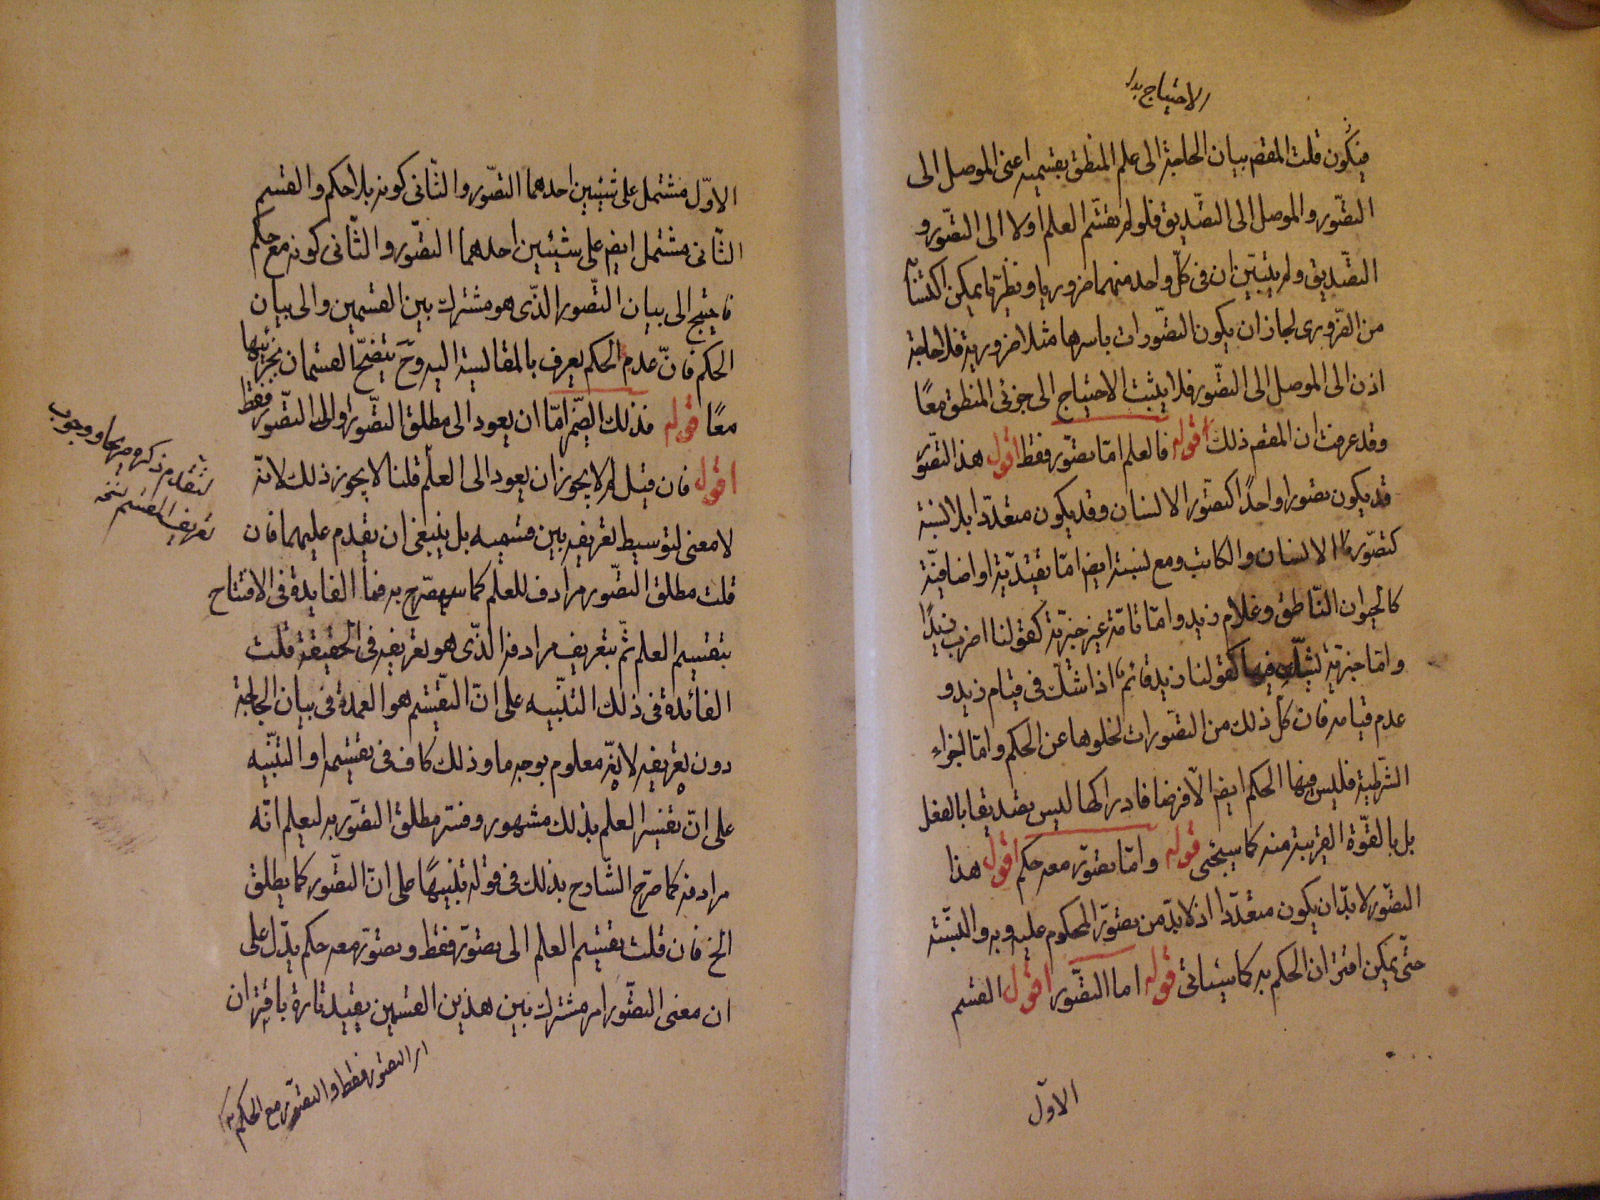 الاحتياج بدا
فيكون قلت المقصـ بيان الحاجة الى علم المنطق بقسميه اعنى الموصل الى
التصّور والموصل الى التصّديق فلو لم يقسّم العلم اولا الى التصّور و
التصّديق ولم يتبيّن ان فى كلّ واحد منهما ضروريا ونظريّا يمكن اكتسابه
من الضّرورى لجاز ان يكون التصّورات باسرها مثلا ضرورية فلا حاجة
اذن الى الموصل الى التصّور فلا يثبت الاحتياج الى جزئى المنطق معًا
وقد عرفت ان المقصـ ذلك قوله فالعلم امّا تصّور فقط اقول هذا التصّور
قد يكون تصّورا واحدًا كتصّور الانسان وقد يكون متعدّدا بلا نسبة
كتصّورنا الانسان والكاتب ومع نسبة ايضـ امّا تقييديّة او اضافيّة
كالحيوان النّاطق وغلام زيد وامّا تامّة غير خبريّة كقولنا اضرب زيدًا
وامّا خبريّة يشكّ فيها كقولنا زيد قائم اذا شكّ فى قيام زيد و
عدم قيامه فان كل ذلك من التصّورات لخلوها عن الحكم وامّا اجزاء
الشّرطية فليس فيها الحكم ايضـ الّا فرضا فادراكها ليس تصديقا بالفعل
بل بالقوّة القريبة منه كما سيجئ قوله وامّا تصّور معه حكم اقول هذا
التصّور لا بدّ ان يكون متعدّدا اذ لا بدّ من تصّور المحكوم عليه وبه والنّسبة
حتّى يمكن اقتران الحكم به كما سياتى قوله اما التصّور اقول القسم
الاوّل
الاوّل مشتمل على شيئين احدهما التصّور والثّانى كونه بلا حكم والقسم
الثّانى مشتمل ايضـ على شيئين احدهما التصّور والثّانى كونه مع حكم
فاحتيج الى بيان التّصور الذّى هو مشترك بين القسمين والى بيان
الحكم فانّ عدم الحكم يعرف بالمقايسة اليه وحَ يتضحّ القسمان بجزئيها
معًا قوله فذلك الضّمير امّا ان يعود الى مطلق التصّور والى التصّور فقط
اقول فان قيل لم لا يجوز ان يعود الى العلم قلنا لا يجوز ذلك لانّه
لا معنى لتوسيط تعريفه بين قسميه بل ينبغى ان يقدم عليهما فان
قلت مطلق التصّور مرادف للعلم كما سيصرّح به فما الفايدة فى الافتتاح
بتقسيم العلم ثمّ بتعريف مرادفه الذّى هو تعريفه فى الحقيقة قلت
الفائدة فى ذلك التنّبيه على انّ التقّسيم هو العمدة فى بيان الحاجة
دون تعريفه لانّه معلوم بوجه ما وذلك كاف فى تقسيمه او التنّبيه
على انّ تفسير العلم بذلك مشهور وفسّر مطلق التصّور به ليعلم انّه
مرادفه كما صرّح الشّارح بذلك فى قوله تنبيهًا على انّ التصّور كما يطلق
الخ فان قلت تقسيم العلم الى تصّور فقط وتصّور معه حكم يدّل على
ان معنى التصّور امر مشترك بين هذين القسمين يقيد تارة باقتران
لتقدم ذكره صريحا ووجوب
تعريف المقسم نسخه
اى التصّور فقط والتصّور مع الحكم